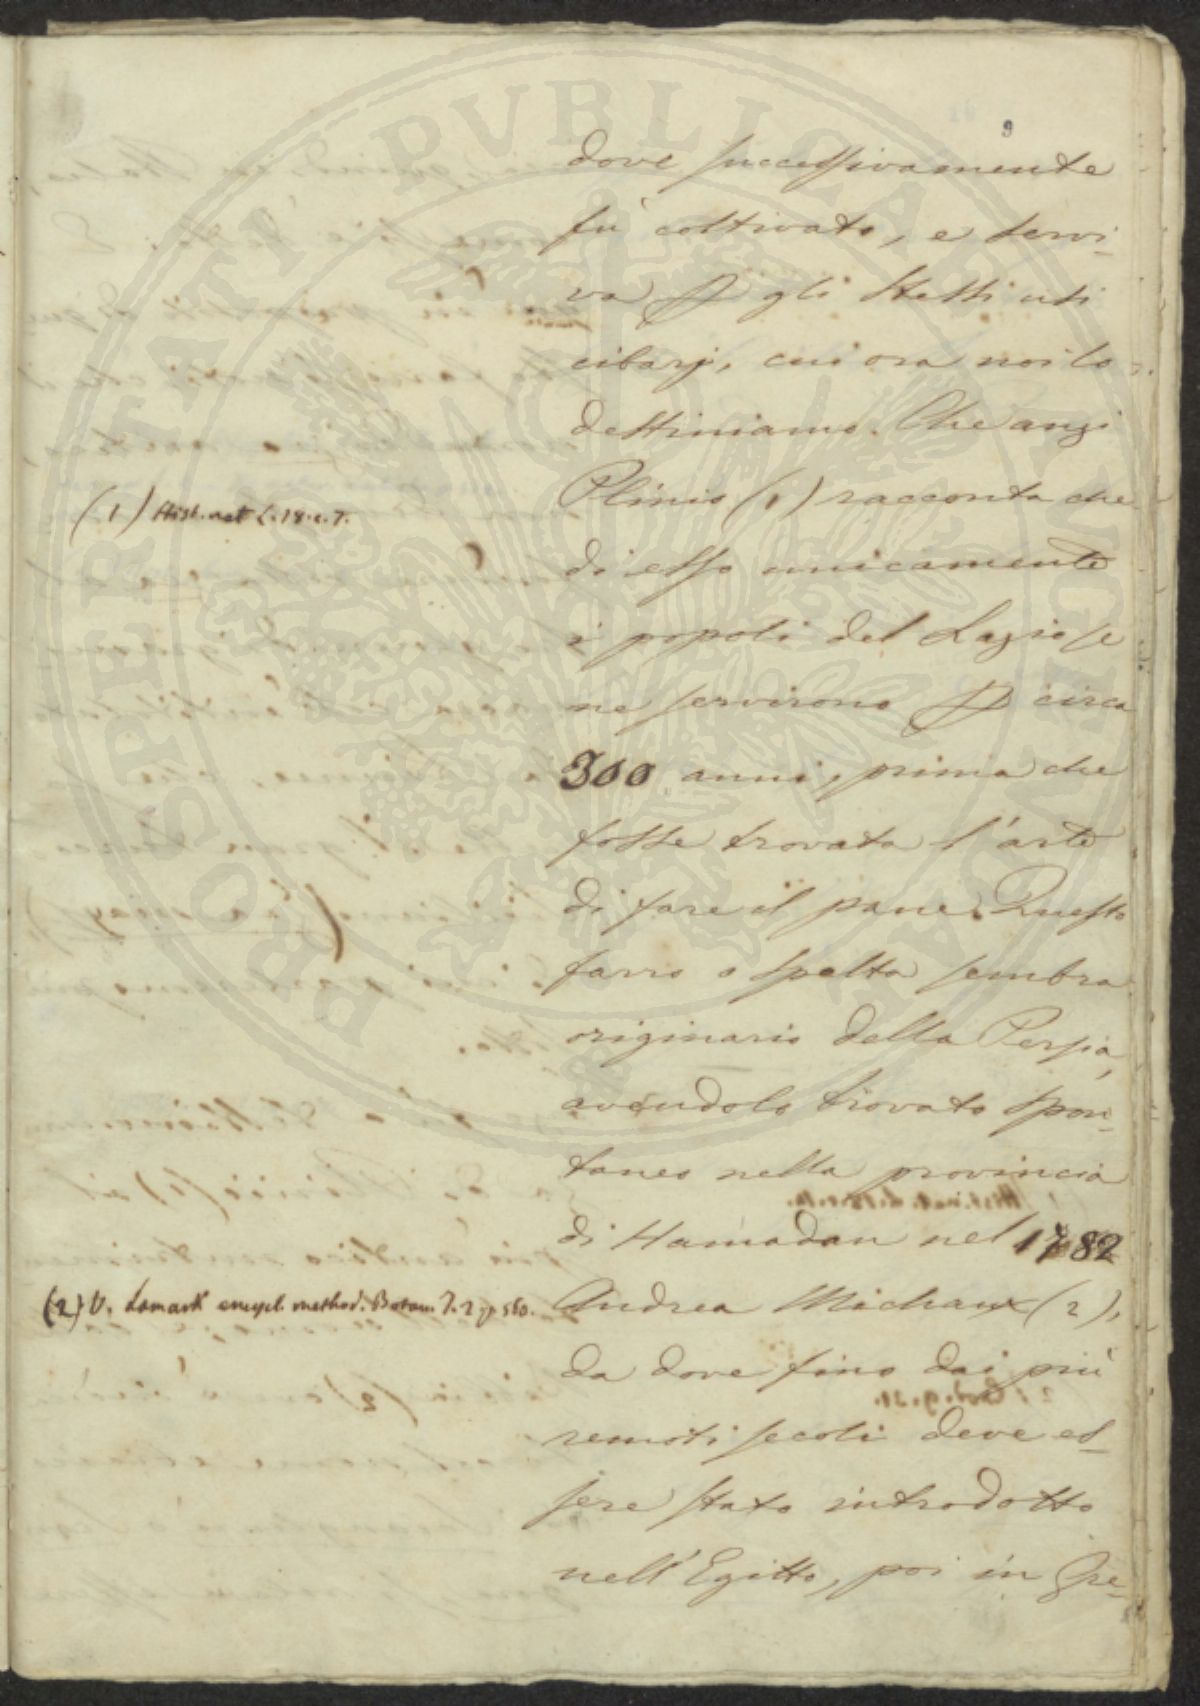 9
dove successivamente
fù coltivato, e servi-
va gli stessi usi
cibarj, cui ora noi lo
destiniamo. Che anzi
Plinio (1) racconta che
(1) Hist. nat. L. 18. c. 7.
di esso unicamente
i popoli del Lazio se
ne servirono circa
300 anni, prima che
fosse trovata l'arte
di fare il pane. Questo
farro o spelta sembra
originario della Persia,
avendolo trovato spon-
taneo nella provincia
di Hamadan nel 1782
Andrea Michaux (2),
(2) V. Lamark encycl. method. Botan. T. 2. p. 560.
da dove fino dai più
remoti secoli deve es-
sere stato introdotto
nell'Egitto, poi in Gre-
PROSPERITATI PVBLICAE AVGENDAE